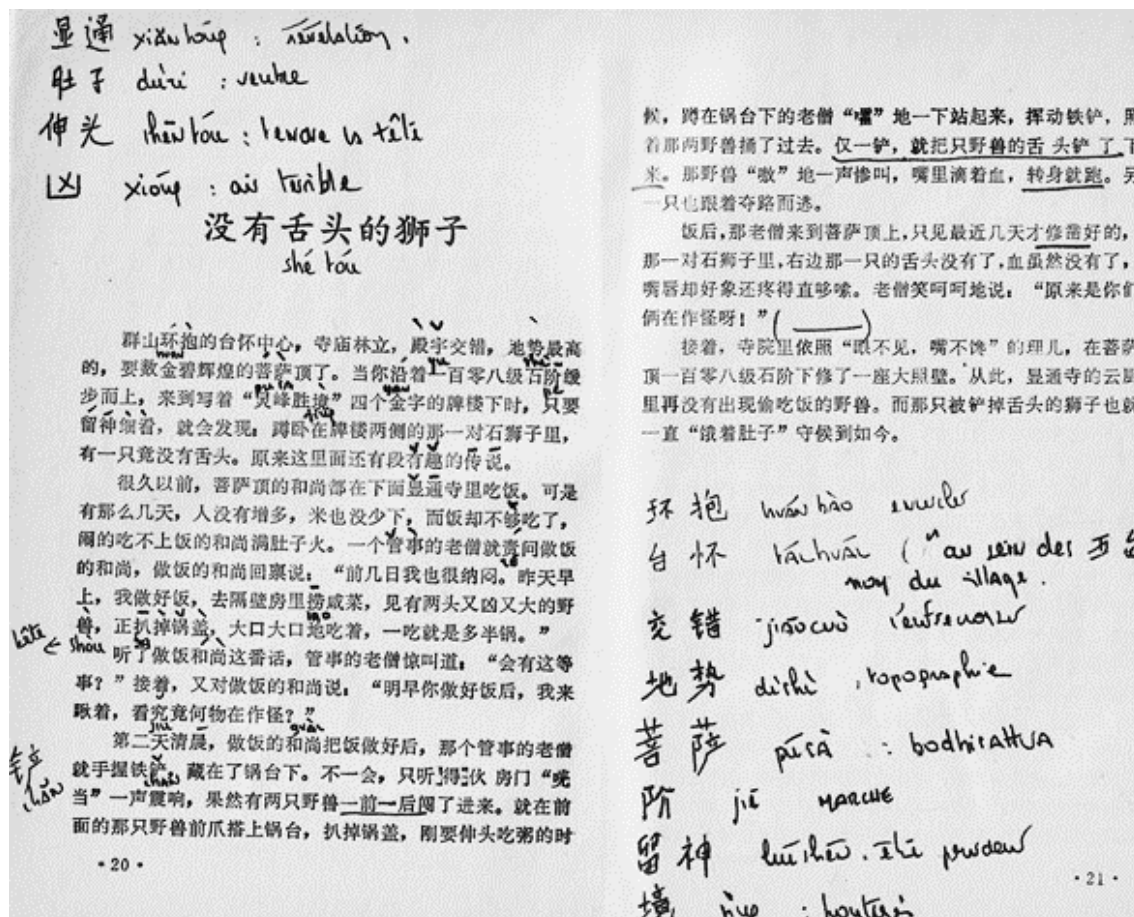 显通 xiǎn tōng : révélation.
肚子 dùzi : ventre
伸头 shēn tóu : tendre la tête
凶 xiōng : air terrible
没有舌头的狮子
shé tóu
群山环抱的台怀中心，寺庙林立，殿宇交错，地势最高
的，要数金碧辉煌的菩萨顶了。当你沿着一百零八级石阶缓
步而上，来到写着“灵峰胜境”四个金字的牌楼下时，只要
留神细看，就会发现：蹲卧在牌楼两侧的那一对石狮子里，
有一只竟没有舌头。原来这里面还有段有趣的传说。
很久以前，菩萨顶的和尚都在下面显通寺里吃饭。可是
有那么几天，人没有增多，米也没少下，而饭却不够吃了，
闹的吃不上饭的和尚满肚子火。一个管事的老僧就责问做饭
的和尚，做饭的和尚回禀说：“前几日我也很纳闷。昨天早
上，我做好饭，去隔壁房里捞咸菜，见有两头又凶又大的野
兽，正扒掉锅盖，大口大口地吃着，一吃就是多半锅。”
bête ← shòu
听了做饭和尚这番话，管事的老僧惊叫道：“会有这等
事？”接着，又对做饭的和尚说：“明早你做好饭后，我来
瞅着，看究竟何物在作怪？”
jiū guài
第二天清晨，做饭的和尚把饭做好后，那个管事的老僧
就手握铁铲，藏在了锅台下。不一会，只听得伙房门“咣
铲 chǎn
当”一声震响，果然有两只野兽一前一后闯了进来。就在前
面的那只野兽前爪搭上锅台，扒掉锅盖，刚要伸头吃粥的时
·20·
候，蹲在锅台下的老僧“嚯”地一下站起来，挥动铁铲，照
着那两野兽捅了过去。仅一铲，就把只野兽的舌头铲了下
来。那野兽“嗷”地一声惨叫，嘴里滴着血，转身就跑。另
一只也跟着夺路而逃。
饭后，那老僧来到菩萨顶上，只见最近几天才修凿好的，
那一对石狮子里，右边那一只的舌头没有了，血虽然没有了，
嘴唇却好象还疼得直哆嗦。老僧笑呵呵地说：“原来是你们
俩在作怪呀！”
接着，寺院里依照“眼不见，嘴不馋”的理儿，在菩萨
顶一百零八级石阶下修了一座大照壁。从此，显通寺的云厨
里再没有出现偷吃饭的野兽。而那只被铲掉舌头的狮子也就
一直“饿着肚子”守候到如今。
环抱 huán bào
台怀 táihuái ("au sein des 五台
nom du village.
交错 jiāocuò
地势 dìshì : topographie
菩萨 púsà : bodhisattva
阶 jiē MARCHE
留神 liúshén
境
·21·